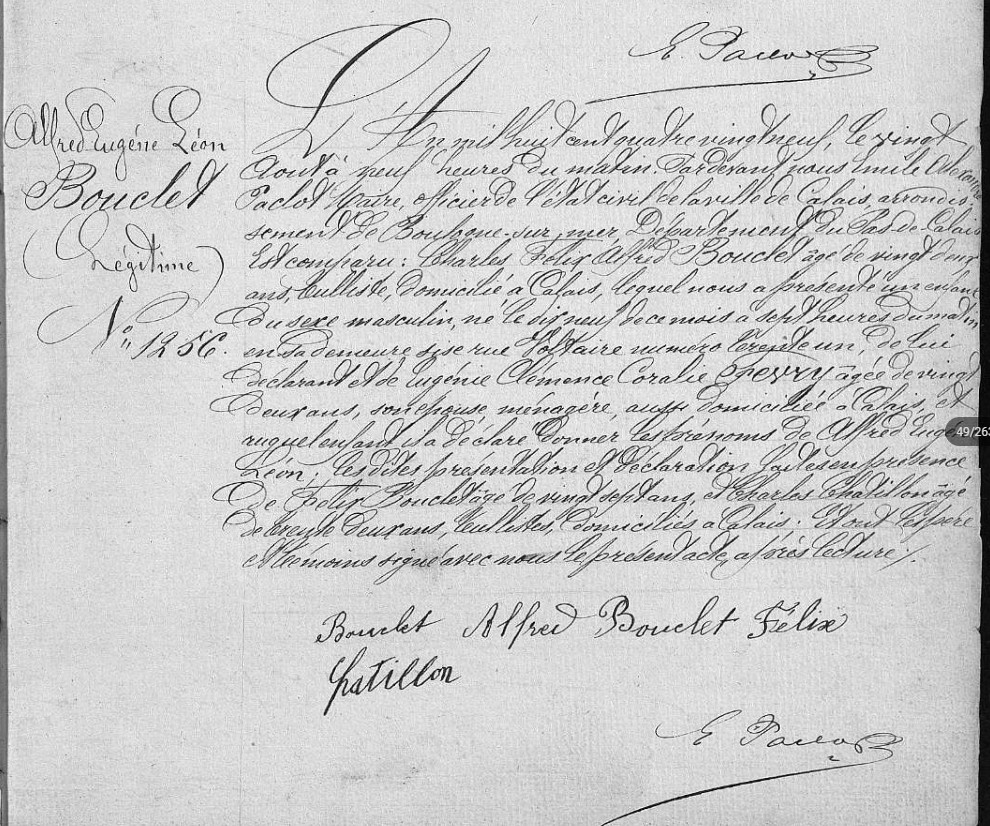 E. Paclot
Alfred Eugène Léon
Bouclet
(Légitime)
N° 1256.
L'An mil huit cent quatre vingt neuf, le vingt
Août à neuf heures du matin. Pardevant nous Emile Alexandre
Paclot Maire, officier de l'état civil de la ville de Calais, arrondis
sement de Boulogne-sur-mer, Département du Pas-de-Calais
Est comparu : Charles Félix Alfred Bouclet âgé de vingt deux
ans, tulliste, domicilié à Calais, lequel nous a présenté un enfant
du sexe masculin, né le dix neuf de ce mois à sept heures du matin
en sa demeure sise rue Voltaire numéro trente un, de lui
déclarant et de Eugénie Clémence Coralie âgée de vingt
deux ans, son épouse ménagère, aussi domiciliée à Calais, et
auquel enfant il a déclaré donner les prénoms de Alfred Eugène
Léon, les dites présentation et déclaration faites en présence
de Félix Bouclet âgé de vingt sept ans, et Charles Chatillon âgé
de trente deux ans, tullistes, domiciliés à Calais. Et ont le père
et témoins signé avec nous le présent acte, après lecture ./.
Bouclet Alfred Bouclet Félix
Chatillon
E Paclot
49/263